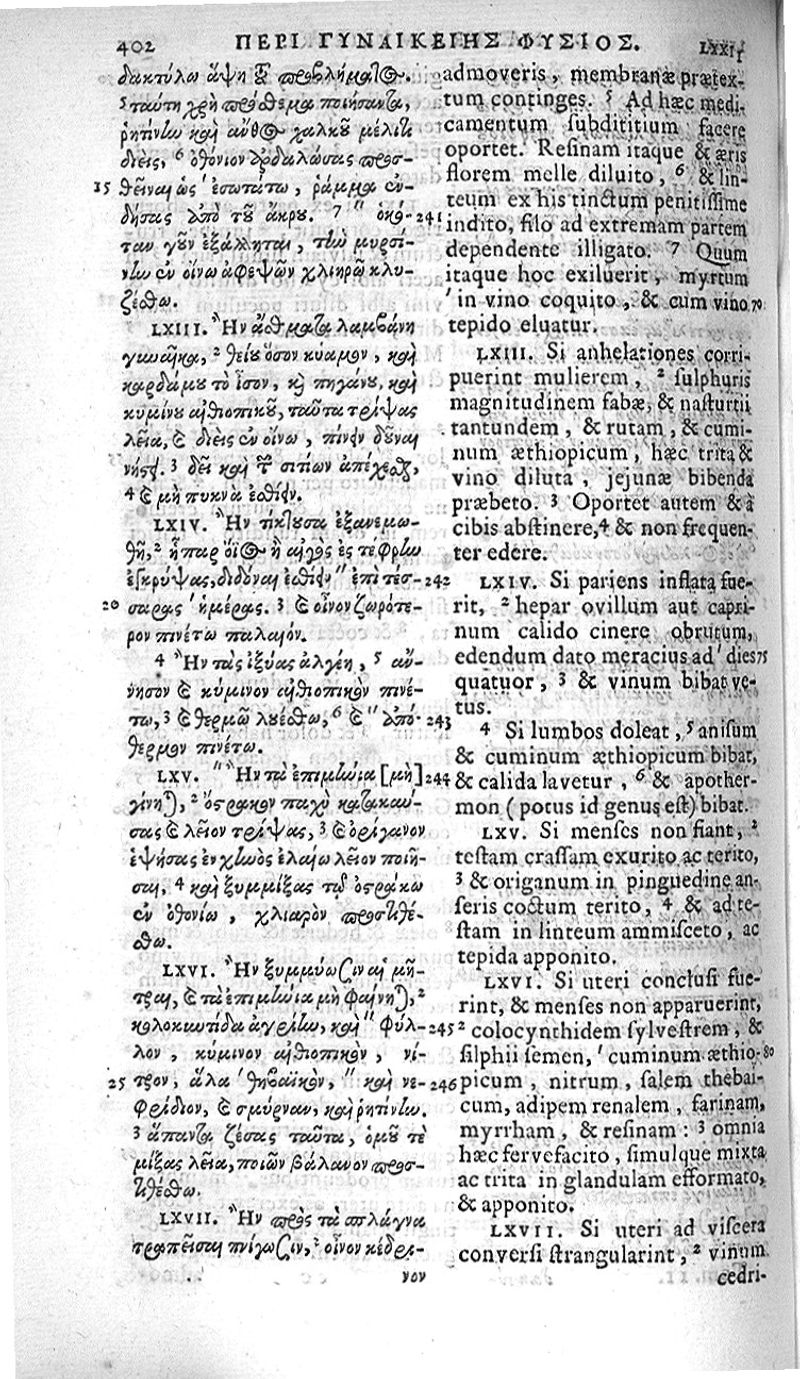 402 ΠΕΡΙ ΓΥΝΑΙΚΕΙΗΣ ΦΥΣΙΟΣ.
δακτύλῳ ἅψῃ τοῦ προβλήματος.
5 ταύτῃ χρὴ πρόθεμα ποιήσαντα,
ῥητίνην καὶ ἄνθος χαλκοῦ μέλιτι
διεὶς, 6 ὀθόνιον ἀρδαλώσας προσ-
15 θεῖναι ὡς ἐσωτάτω, ῥάμμα ἐν-
δήσας ἀπὸ τοῦ ἄκρου. 7 " ὁκό- 241
ταν γοῦν ἐξάλληται, τὴν μυρσί-
νην ἐν οἴνῳ ἀφεψῶν χλιηρῷ κλυ-
ζέσθω.
LXIII. "Ην ἄσθματα λαμβάνῃ
γυναῖκα, 2 θείου ὅσον κύαμον, καὶ
καρδάμου τὸ ἶσον, κὴ πηγάνου, καὶ
κυμίνου αἰθιοπικοῦ, ταῦτα τρίψας
λεῖα, καὶ διεὶς ἐν οἴνῳ, πίνειν δοῦναι
νήστει. 3 δεῖ καὶ τῶν σιτίων ἀπέχεσθαι,
4 καὶ μὴ πυκνὰ ἐσθίειν.
LXIV. "Ην τίκτουσα ἐξανεμω-
θῇ, 2 ἧπαρ ὄϊος ἢ αἰγὸς ἐς τέφρην
ἐγκρύψας, διδόναι ἐσθίειν " ἐπὶ τέσ- 242
20 σαρας ἡμέρας. 3 καὶ οἶνον ζωρότε-
ρον πινέτω παλαιόν.
4 "Ην τὰς ἰξύας ἀλγέῃ, 5 ἄν-
νησον καὶ κύμινον αἰθιοπικὸν πινέ-
τω, 3 καὶ θερμῷ λουέσθω, 6 καὶ " ἀπό- 243
θερμον πινέτω.
LXV. " "Ην τὰ ἐπιμήνια [μὴ] 244
γίνηται, 2 ὄστρακον παχὺ κατακαύ-
σας καὶ λεῖον τρίψας, 3 καὶ ὀρίγανον
ἑψήσας ἐν χηνὸς ἐλαίῳ λεῖον ποιῆ-
σαι, 4 καὶ ξυμμίξας τῷ ὀστράκῳ
ἐν ὀθονίῳ, χλιαρὸν προστιθέ-
σθω.
LXVI. "Ην ξυμμύωσιν αἱ μῆ-
τραι, καὶ τὰ ἐπιμήνια μὴ φαίνηται, 2
κολοκιωτίδα ἀγρίην, καὶ " φύλ- 245
λον, κύμινον αἰθιοπικὸν, νί-
25 τρον, ἅλα θηβαϊκὸν, " καὶ νε- 246
φρίδιον, καὶ σμύρναν, καὶ ῥητίνην.
3 ἅπαντα ζέσας ταῦτα, ὁμοῦ τὲ
μίξας λεῖα, ποιῶν βάλανον προσ-
τιθέσθω.
LXVII. "Ην πρὸς τὰ σπλάγνα
τραπεῖσαι πνίγωσιν, 2 οἶνον κέδρι-
νον
admoveris, membranæ prætex-
tum continges. 5 Ad hæc medi-
camentum subdititium facere
oportet. Resinam itaque & æris
florem melle diluito, 6 & lin-
teum ex his tinctum penitissime
indito, filo ad extremam partem
dependente illigato. 7 Quum
itaque hoc exiluerit, myrtum
in vino coquito, & cum vino 70
tepido eluatur.
LXIII. Si anhelationes corri-
puerint mulierem, 2 sulphuris
magnitudinem fabæ, & nasturtii
tantundem, & rutam, & cumi-
num æthiopicum, hæc trita &
vino diluta, jejunæ bibenda
præbeto. 3 Oportet autem & à
cibis abstinere, 4 & non frequen-
ter edere.
LXIV. Si pariens inflata fue-
rit, 2 hepar ovillum aut capri-
num calido cinere obrutum,
edendum dato meracius ad dies 75
quatuor, 3 & vinum bibat ve-
tus.
4 Si lumbos doleat, 5 anisum
& cuminum æthiopicum bibat,
& calida lavetur, 6 & apother-
mon (potus id genus est) bibat.
LXV. Si menses non fiant, 2
testam crassam exurito ac terito,
3 & origanum in pinguedine an-
seris coctum terito, 4 & ad te-
stam in linteum ammisceto, ac
tepida apponito.
LXVI. Si uteri conclusi fue-
rint, & menses non apparuerint,
2 colocynthidem sylvestrem, &
silphii semen, cuminum æthio- 80
picum, nitrum, salem thebai-
cum, adipem renalem, farinam,
myrrham, & resinam: 3 omnia
hæc fervefacito, simulque mixta
ac trita in glandulam efformato,
& apponito.
LXVII. Si uteri ad viscera
conversi strangularint, 2 vinum
cedri-